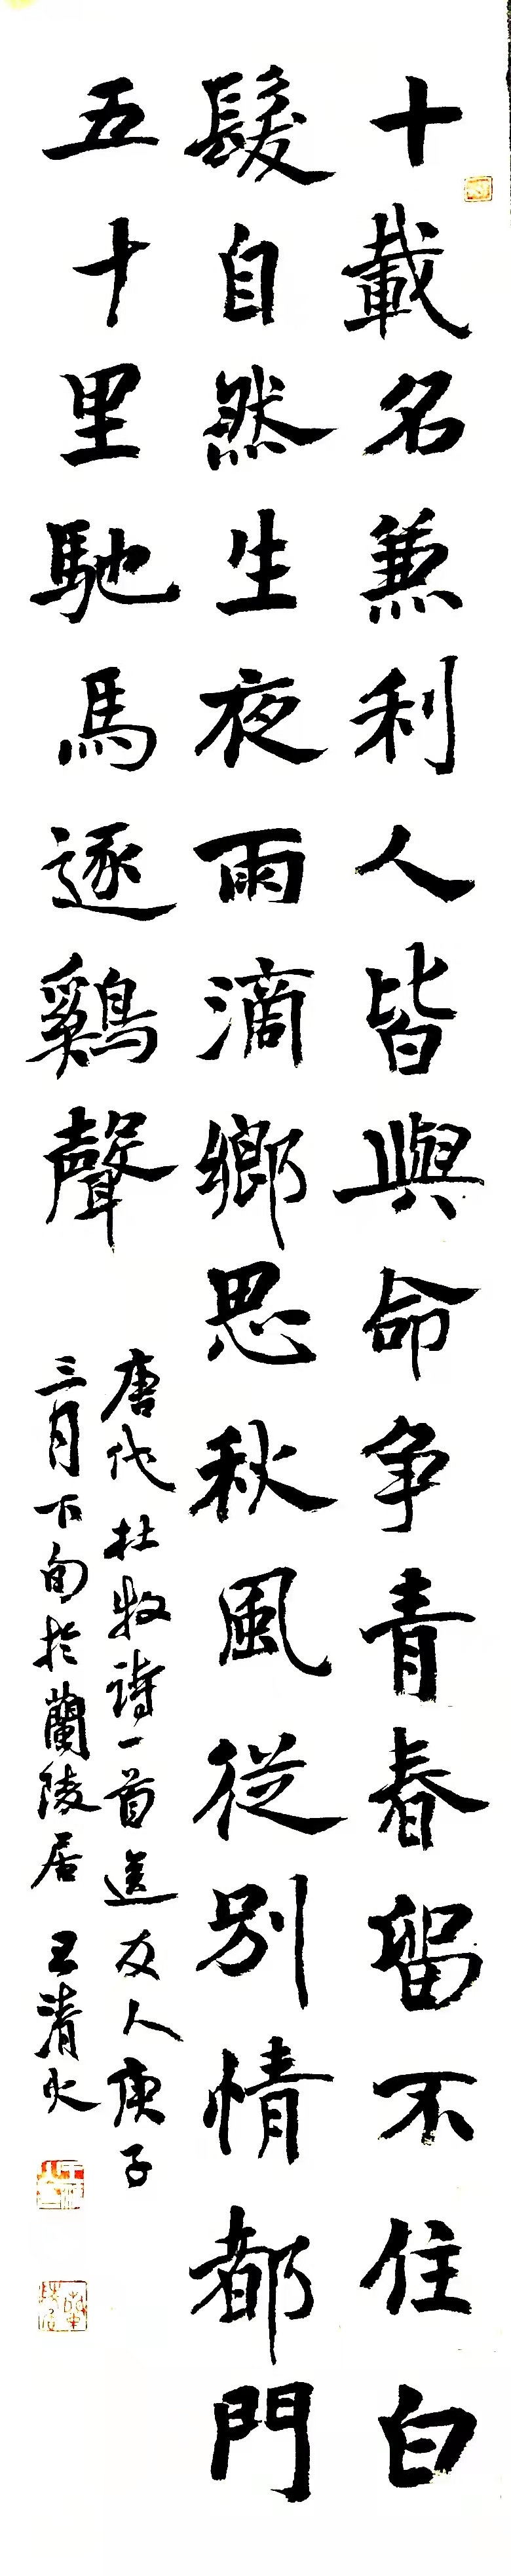 十載名兼利人皆與命争青春留不住白
髮自然生夜雨滴鄉思秋風從別情都門
五十里馳馬逐鷄聲
唐代杜牧詩一首送友人庚子
三月下旬於蘭陵居王清火